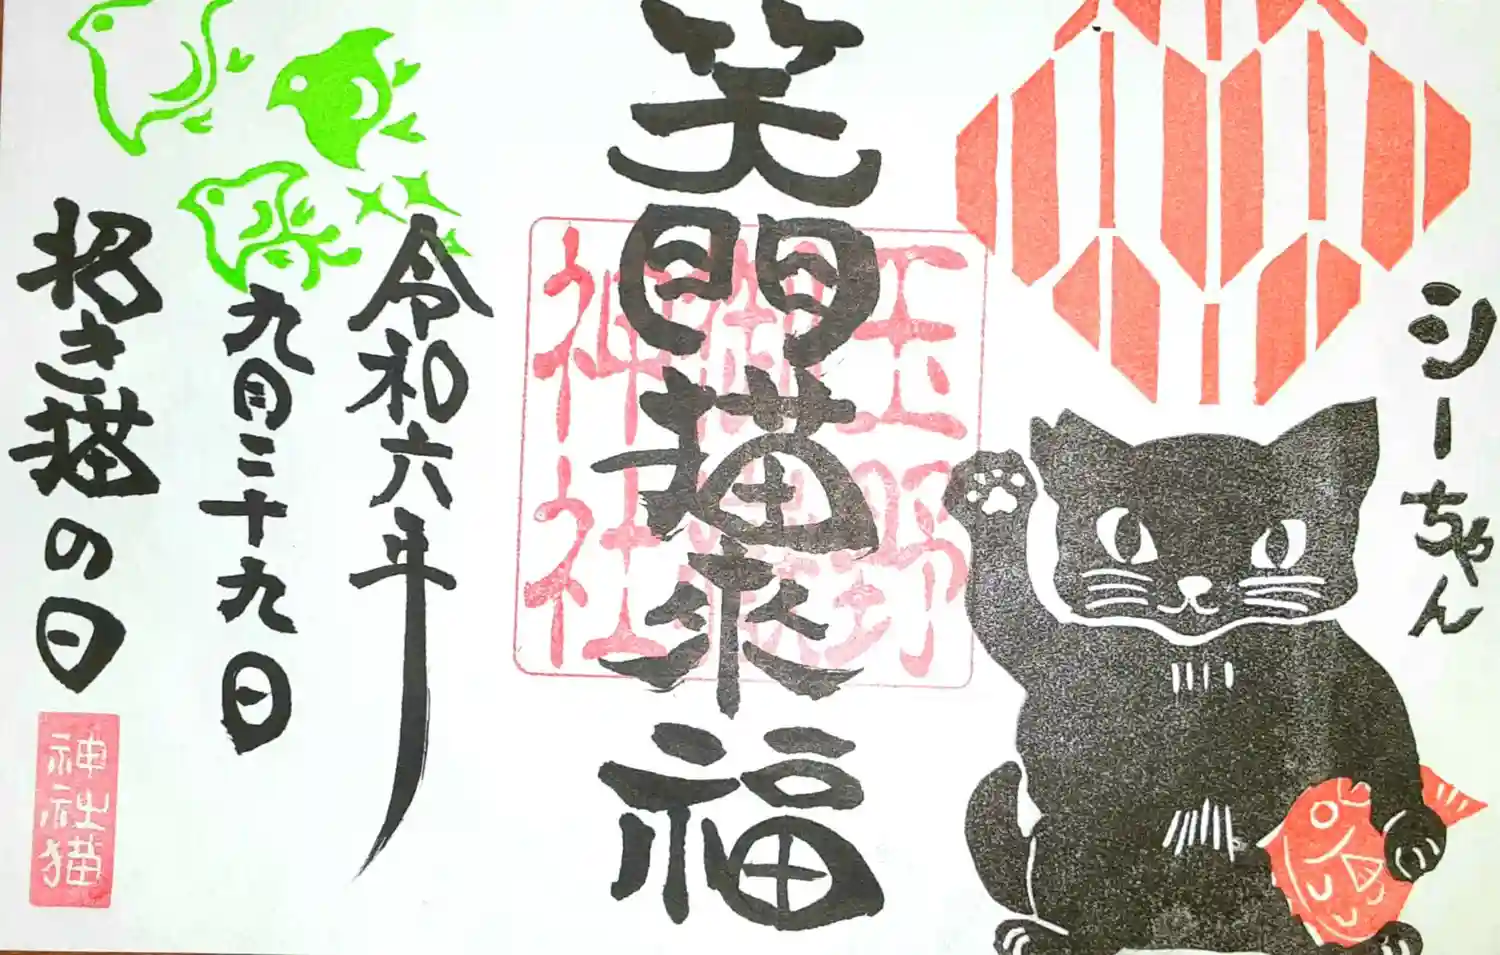 シーちゃん
笑門猫来福
玉野
御嶽
神社
令和六年
九月二十九日
招き猫の日
神社猫